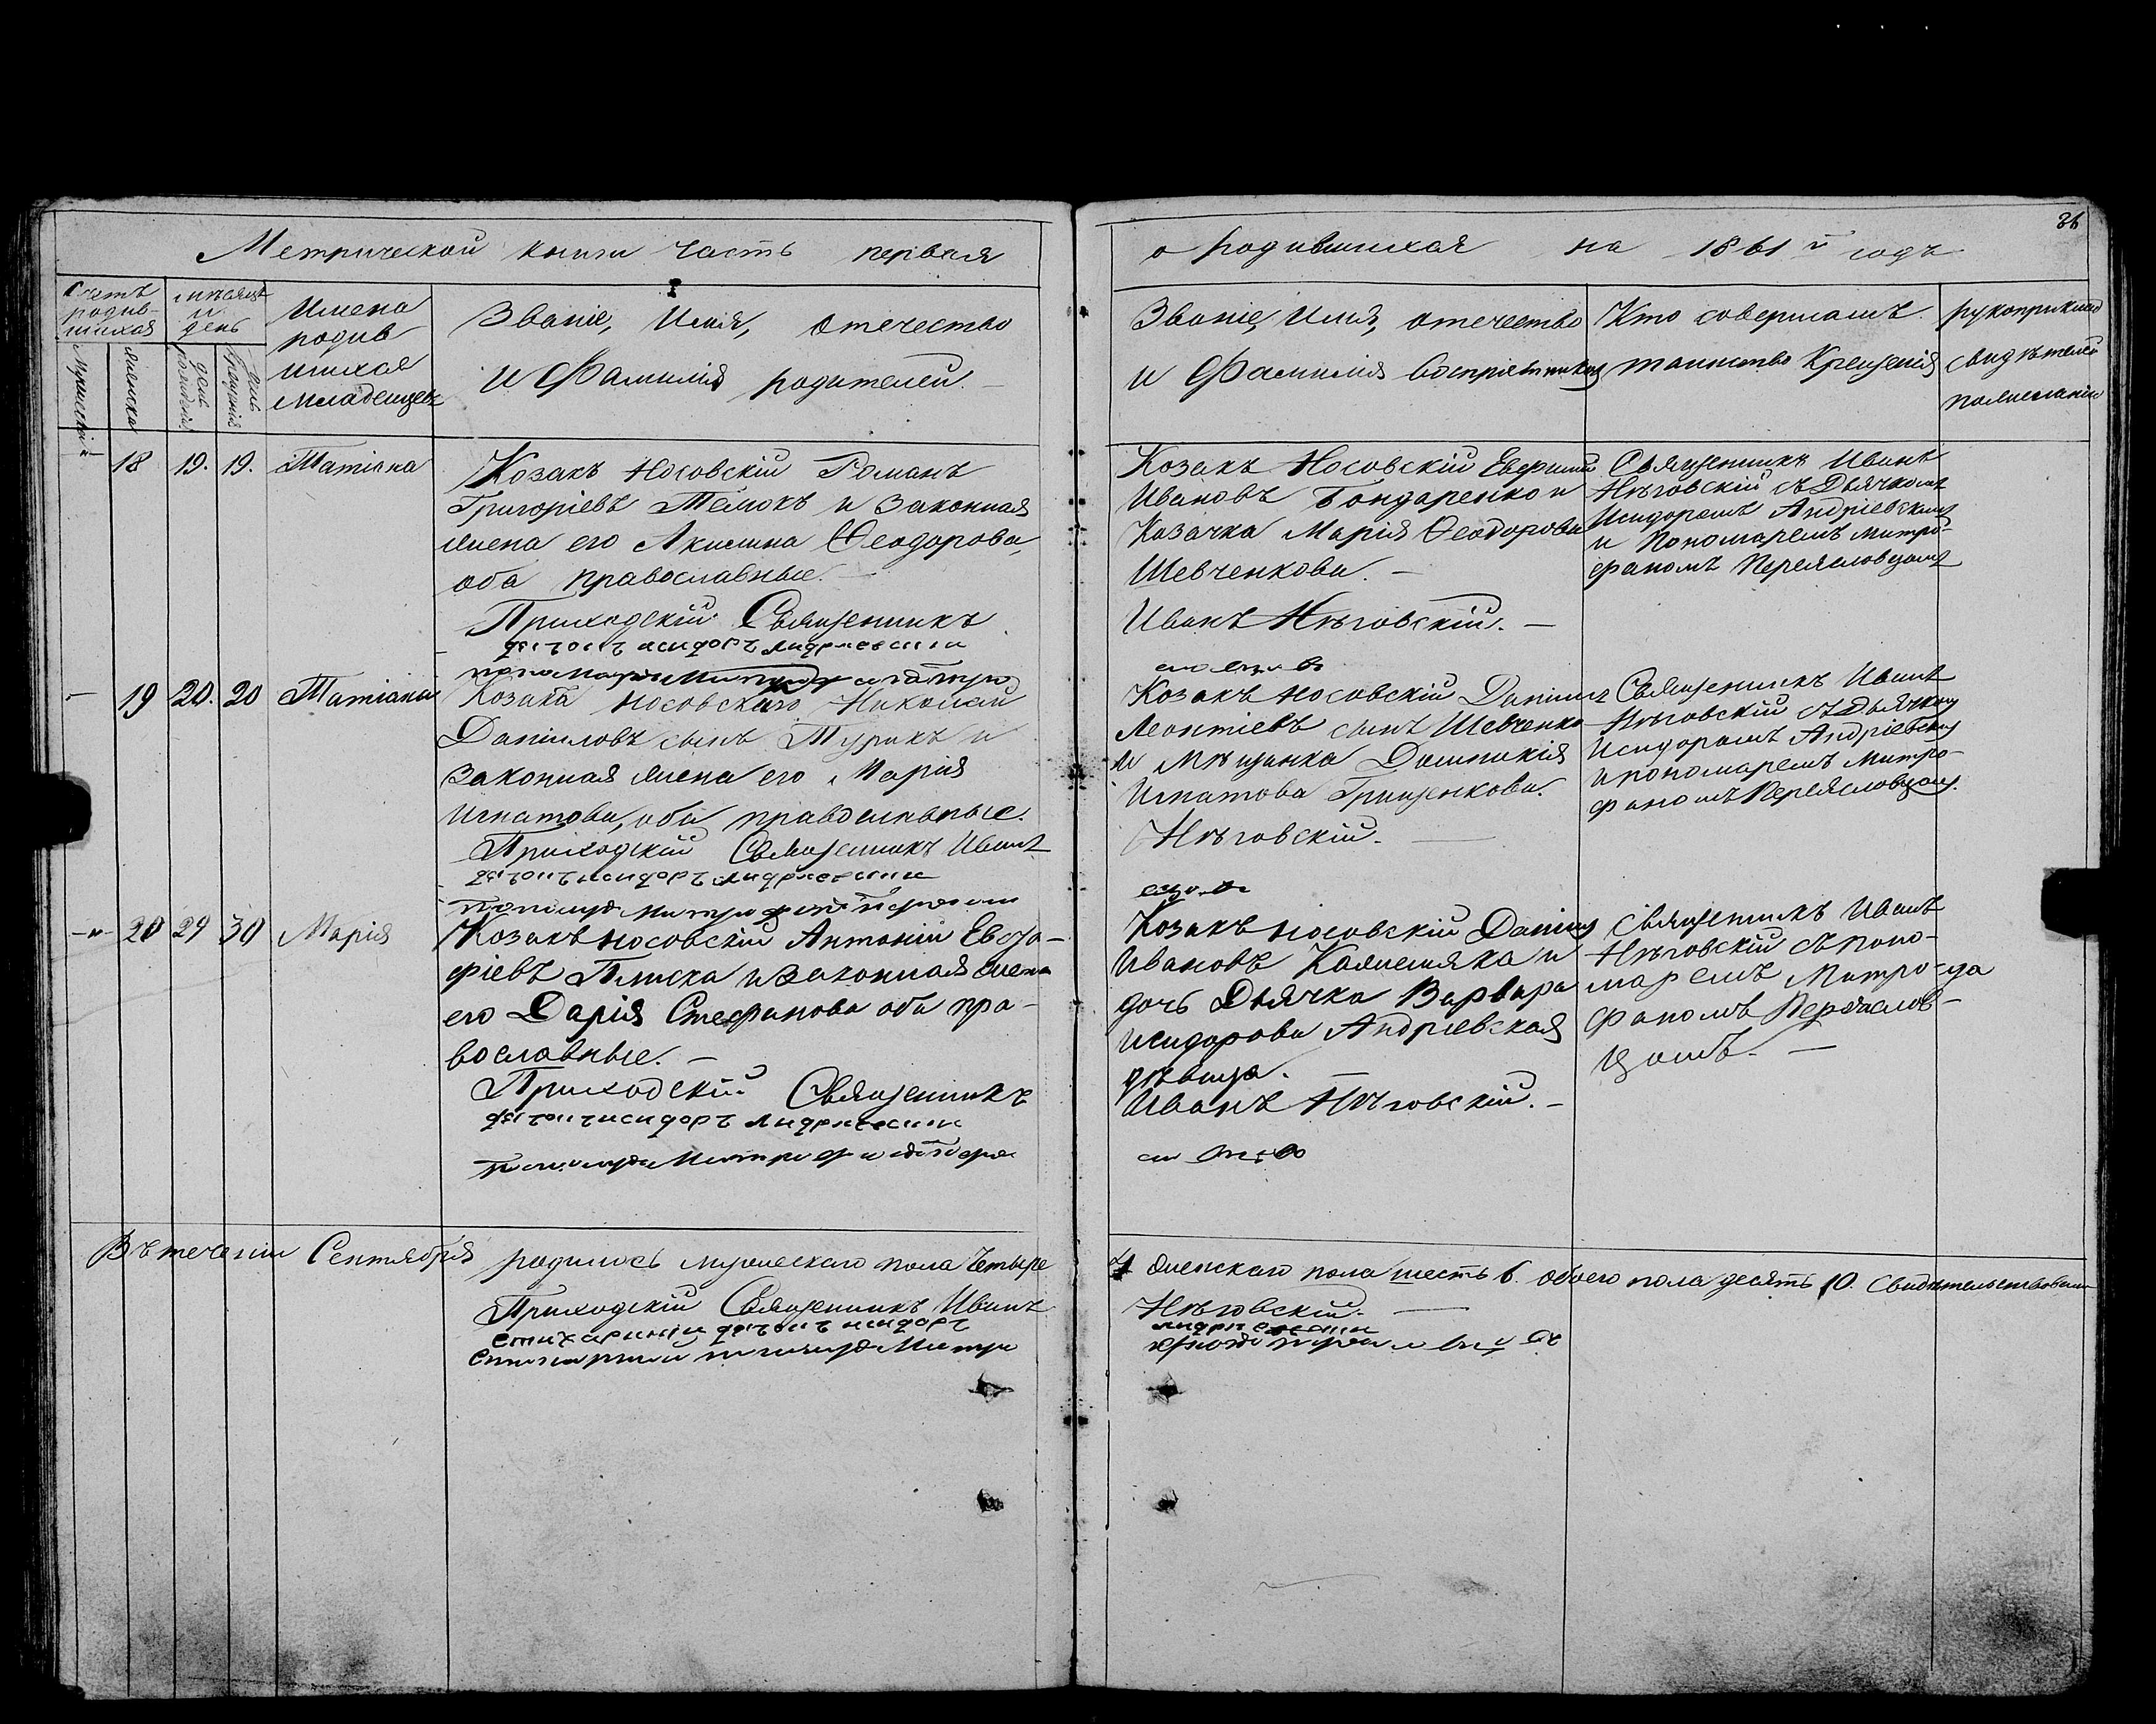 Метрической книги часть первая
о родившихся на 1861й годъ
Счетъ родив-шихся
мѣсяцъ и день
Имена родив шихся младенцевъ
Званіе, Имя, отечество
и Фамилія родителей.
Званіе, Имя, отечество
и Фамилія воспріемниковъ
Кто совершалъ
таинство Крещенія
рукоприклад
свидѣтелей
по желанію
Мужескій
женска
день рожденія
день крещенія
18 19. 19. Татіана
Козакъ Носовскій Романъ
Григоріевъ Телюкъ и Законная
жена его Акилина Ѳеодорова,
оба православные. —
Приходскій Священникъ
дьячокъ исидоръ андриевскии
пономарь
Козакъ Носовскій Евфимій
Ивановъ Бондаренко и
Козачка Марія Ѳеодорова
Шевченкова. —
Иванъ Нѣговскій. —
Священникъ Иванъ
Нѣговскій съ Дьячкомъ
Исидоромъ Андріевскимъ
и Пономаремъ Митро-
фаномъ Переясловцомъ
19 20. 20 Татіана
Козака Носовскаго Николай
Даніиловъ сынъ Турикъ и
Законная жена его Марія
Игнатова, оба православные.
Приходскій Священникъ Иванъ
дьячокъ исидоръ андриевскии
Козакъ Носовскій Даніилъ
Леонтіевъ сынъ Шевченко
и Мѣщанка Домникія
Игнатова Грищенкова.
Нѣговскій. —
Священникъ Иванъ
Нѣговскій съ Дьячкомъ
Исидоромъ Андріевским
и пономаремъ Митро-
фаномъ Переясловцомъ.
-"- 20 29 30 Марія
Козакъ Носовскій Антоній Евста-
фіевъ Плиска и Законная жена
его Дарія Стефанова оба пра-
вославные. —
Приходскій Священникъ
дьячокъ исидоръ андриевскии
Козакъ Носовскій Даніилъ
Ивановъ и
дочь Дьячка Варвара
Исидорова Андріевская
дѣвица.
Иванъ Нѣговскій. —
Священникъ Иванъ
Нѣговскій съ поно-
маремъ Митро-
фаномъ Переяслов-
цомъ. —
Въ теченіи Сентября родилось мужескаго пола Четыре
4 женскаго пола шесть 6. обоего пола десять 10. Свидѣтельствовали
Приходскій Священникъ Иванъ
Нѣговскій. —
стихарніи дьячокъ исидоръ
андриевскии